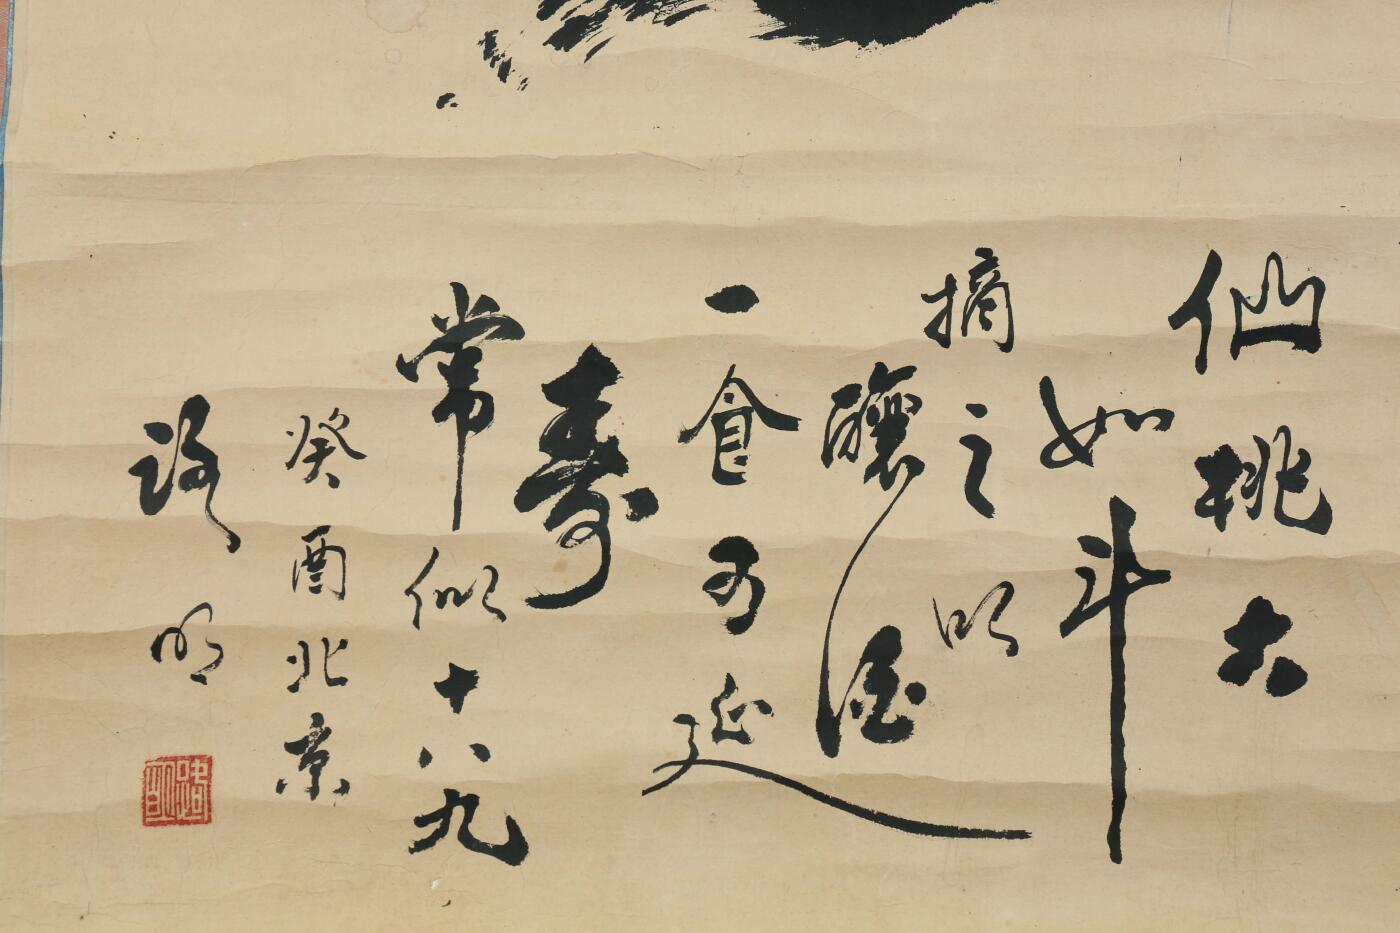 仙桃大
如斗
摘之以
釀酒
一食可延
壽
常似十八九
癸酉北京
路明
路明